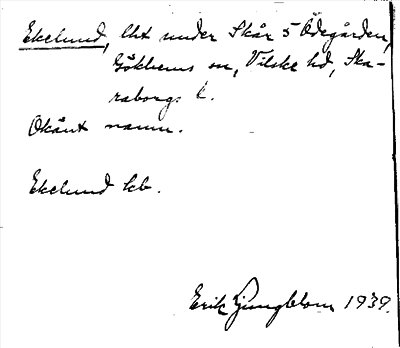 Ekelund, lht under Skår 5 Ödegården,
Gökhems sn, Vilske hd, Ska-
raborgs l.
Okänt namn.
Ekelund kb.
Erik Ljungblom 1939.